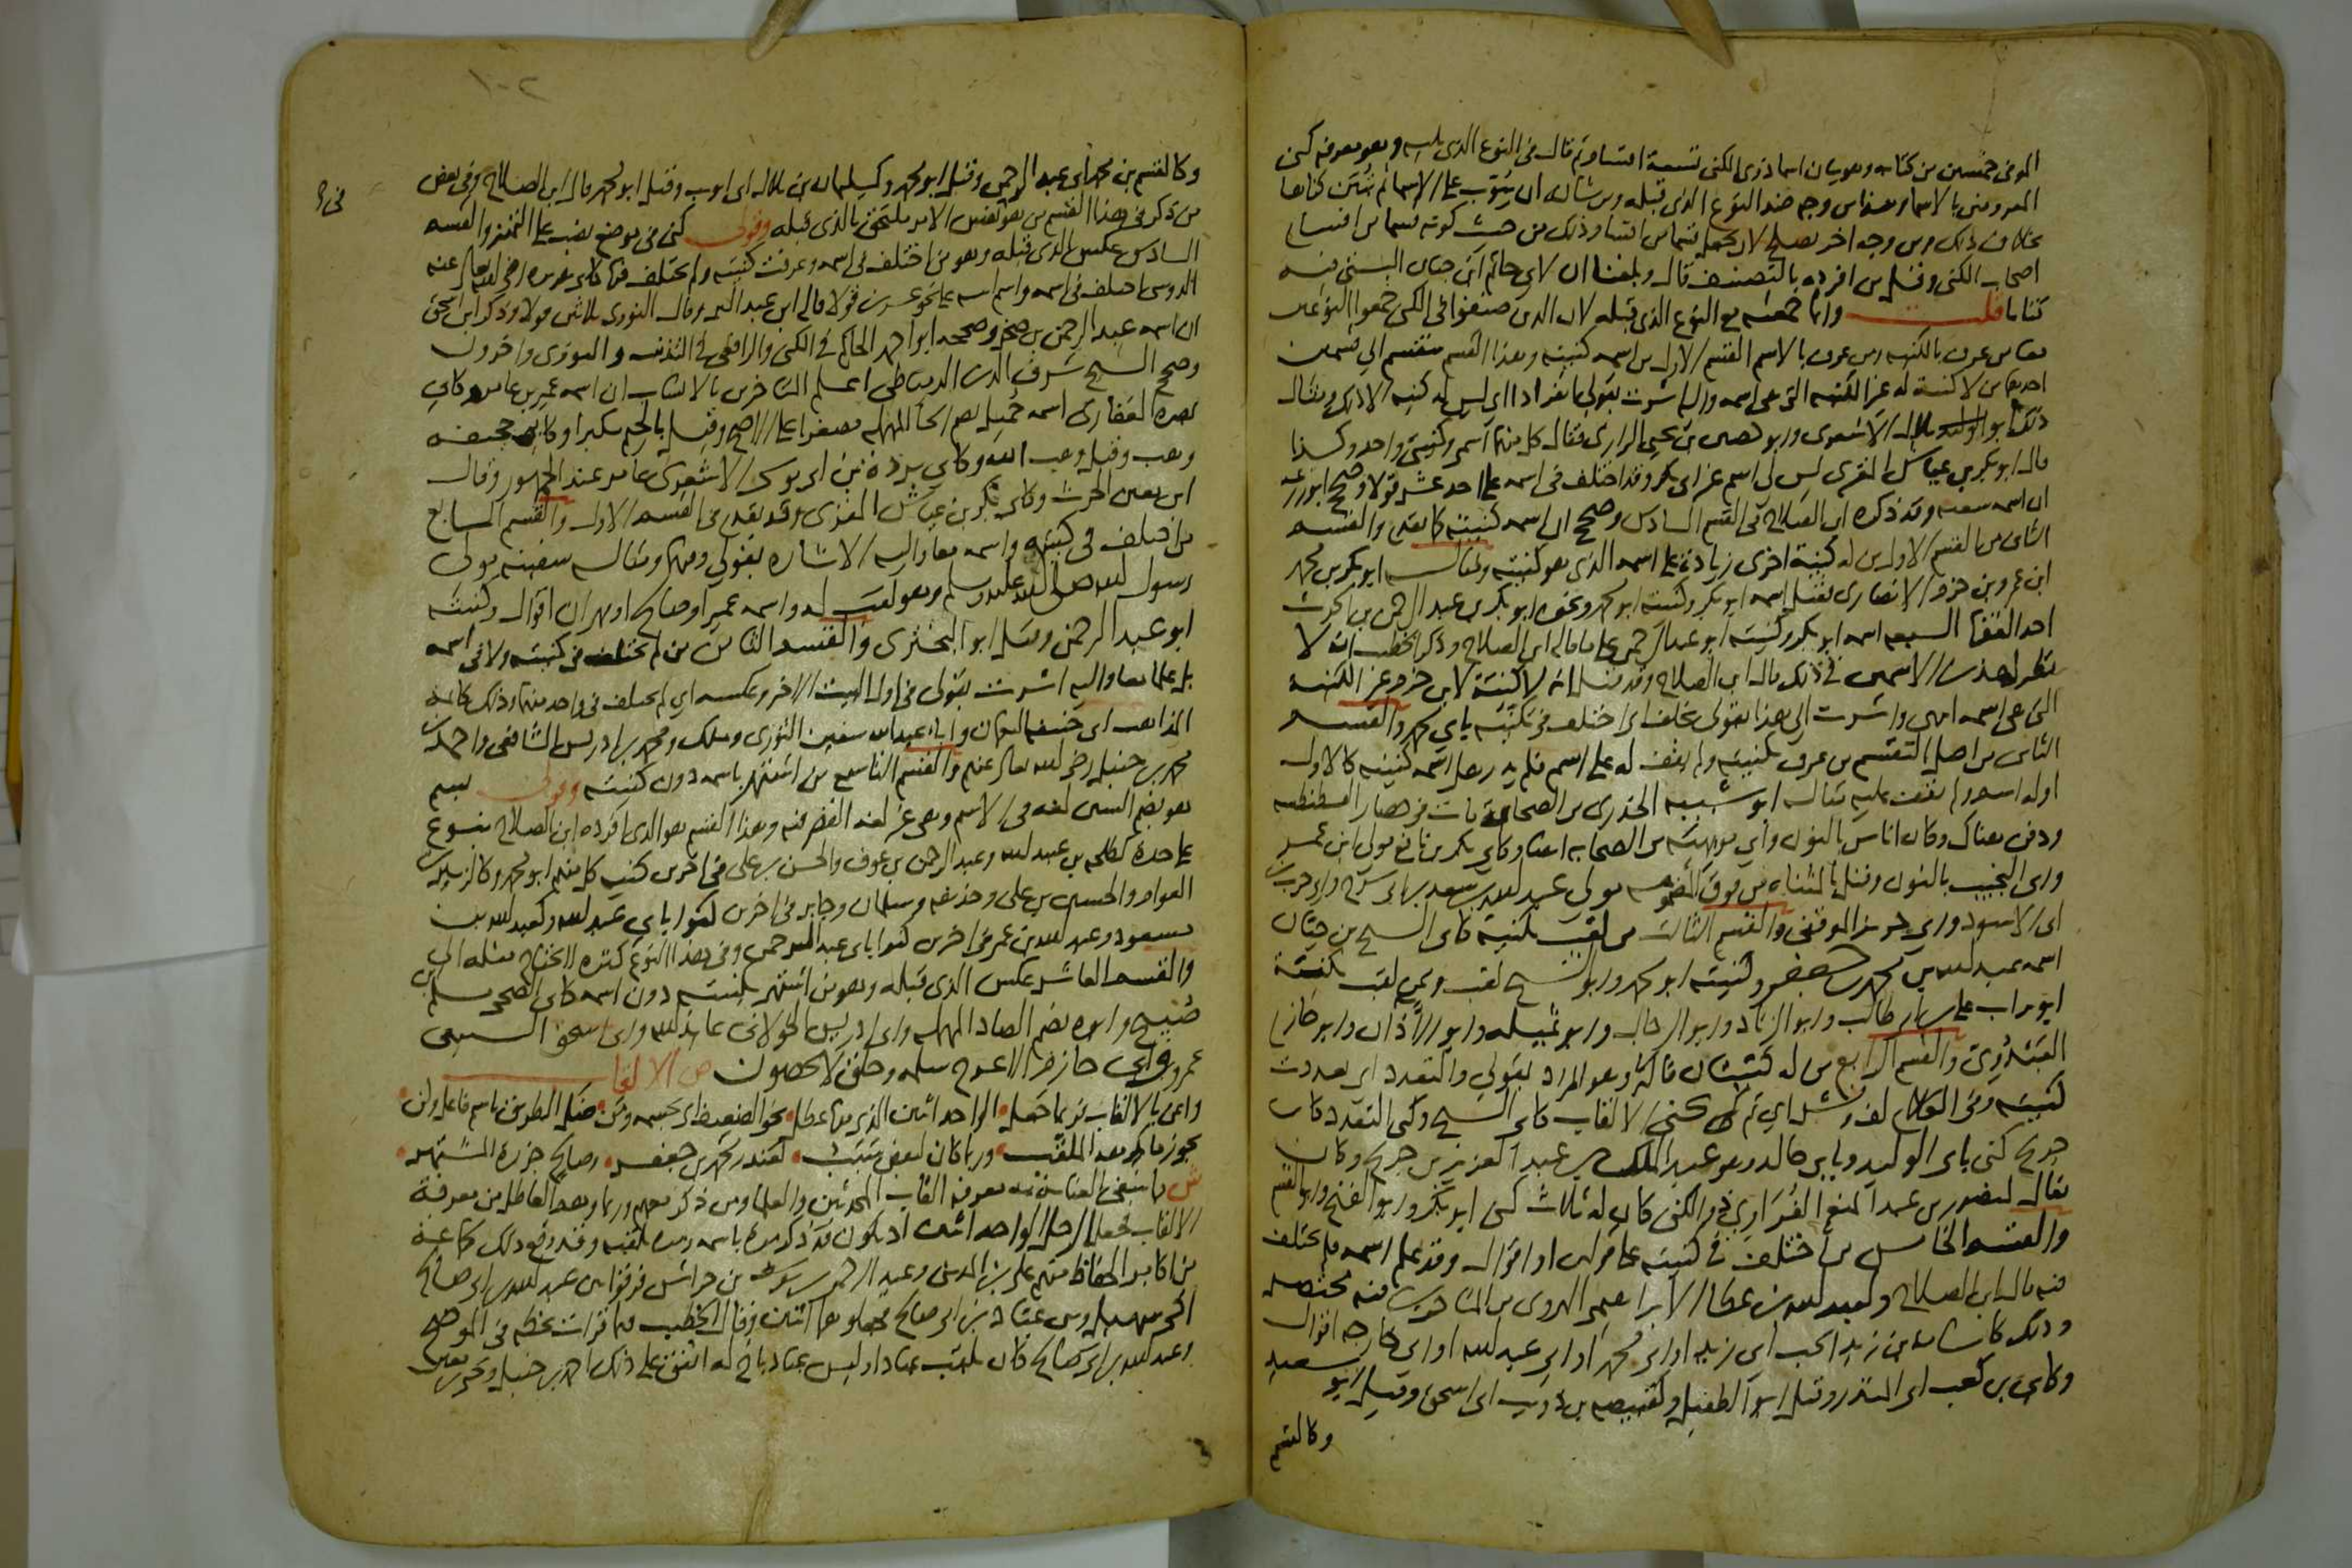 الموفى خمسين من كتابه وهو بيان اسما ذوى الكنى تسعة اقسام ثم قال فى النوع الذى يليه وهو معرفة كنى
المعروفين بالاسما وهذا من وجه ضد النوع الذى قبله ومن شأنه ان يبوب على الاسما ثم تبين كناها
بخلاف ذلك ومن وجه اخر يصلح لان يجعل قسما من اقسام ذلك من حيث كونه قسما من اقسام
اصحاب الكنى وقل من افرده بالتصنيف قال وبلغنا ان لابى حاتم ابن حبان البستى فيه
كتابا قلت وانما جمعته مع النوع الذى قبله لان الذين صنفوا فى الكنى جمعوا النوعين
معا من عرف بالكنية ومن عرف بالاسم القسم الاول من اسمه كنيته وهذا القسم منقسم الى قسمين
احدهما من لا كنية له غير الكنية التى هى اسمه واليه اشرت بقولى انفرادا اى ليس له كنية الا ذلك ومثال
ذلك ابو بلال الاشعرى وابو حصين بن يحيى الرازى فقال كل منهما اسمى وكنيتى واحد وكذا
قال ابو بكر بن عياش المقرى ليس لى اسم غير ابى بكر وقد اختلف فى اسمه على احد عشر قولا وصحح ابو زرعة
ان اسمه شعبه وقد ذكره ابن الصلاح فى القسم السادس وصحح ان اسمه كنيته كما تقدم والقسم
الثانى من القسم الاول من له كنية اخرى زيادة على اسمه الذى هو كنيته ومثاله ابو بكر بن محمد
ابن عمرو بن حزم الانصارى فقيل اسمه ابو بكر وكنيته ابو محمد ونحوه ابو بكر بن عبد الرحمن بن الحرث
احد الفقها السبعه اسمه ابو بكر وكنيته ابو عبد الرحمن على ما قاله ابن الصلاح وذكر الخطيب انه لا
نظير لهذين الاسمين فى ذلك قال ابن الصلاح وقد قيل انه لا كنية لابن حزم غير الكنية
التى هى اسمه انتهى واشرت الى هذا بقولى بخلف اى اختلف فى تكنيته بابى محمد والقسم
الثانى من اصل التقسيم من عرف بكنيته ولم نقف له على اسم فلم يدر هل اسمه كنيته كالاول
او له اسم ولم نقف عليه مثاله ابو شيبه الخدرى من الصحابة مات فى حصار القسطنطينية
ودفن هناك وكابى اناس بالنون وابى مويهبة من الصحابه ايضا وكابى بكر بن نافع مولى ابن عمر
وابى النجيب بالنون وقيل بالمثناه من فوق المضمومه مولى عبد الله بن سعد بن ابى سرح وابى حرب بن
ابى الاسود وابى حريز الموقفى والقسم الثالث من لقب بكنية كابى الشيخ بن حيان
اسمه عبد الله بن محمد بن جعفر وكنيته ابو محمد وابو الشيخ لقب وممن لقب بكنية
ابو تراب على بن ابى طالب وابو الزناد وابو الرجال وابو تميله وابو الآذان وابو حازم
العبدوى والقسم الرابع من له كنيتان فاكثر وهو المراد بقولى والتعدد اى تعددت
كنيته وفى الكلام لف ونشر اى ثم كنى الالقاب كابى الشيخ وكنى التعدد كابن
جريج كنى بابى الوليد وبابى خالد وهو عبد الملك بن عبد العزيز بن جريج وكان
يقال لمنصور بن عبد المنعم الفراوى ذو الكنى كان له ثلاث كنى ابو بكر وابو الفتح وابو القسم
والقسم الخامس من اختلف فى كنيته على قولين او اقوال وقد علم اسمه فلم يختلف
فيه قال ابن الصلاح ولعبد الله بن عطا الابراهيمى الهروى من المتاخرين فيه مختصر
وذلك كاسامه بن زيد الحب ابى زيد او ابى محمد او ابى عبد الله او ابى خارجه اقوال
وكابى بن كعب ابى المنذر وقيل ابو الطفيل وكقبيصه بن ذويب ابى اسحق وقيل ابو سعيد
وكالقسم
١٠٢
وكالقسم بن محمد ابى عبد الرحمن وقيل ابو محمد وكسليمان بن بلال ابى ايوب وقيل ابو محمد قال ابن الصلاح وفى بعض
من ذكر فى هذا القسم من هو فى نفس الامر ملتحق بالذى قبله وقولى كنى فى موضع نصب على التمييز والقسم
السادس عكس الذى قبله وهو من اختلف فى اسمه وعرفت كنيته ولم يختلف فيها كابى هريره رضى الله تعالى عنه
الدوسى اختلف فى اسمه واسم ابيه على نحو عشرين قولا قاله ابن عبد البر وقال النووى ثلاثين قولا وذكر ابن اسحق
ان اسمه عبد الرحمن بن صخر وصححه ابو احمد الحاكم فى الكنى والرافعى فى التذنيب والنووى واخرون
وصحح الشيخ شرف الدين الدمياطى اعلم المتاخرين بالانساب ان اسمه عمير بن عامر وكابى
بصرة الغفارى اسمه حميل بضم الحا المهمله مصغرا على الاصح وقيل بالجيم مكبرا وكابى جحيفه
وهب وقيل وهب الله وكابى بردة بن ابى موسى الاشعرى عامر عند الجمهور وقال
ابن معين الحرث وكابى بكر بن عياش المقرى وقد تقدم فى القسم الاول والقسم السابع
من اختلف فى كنيته واسمه معا واليه الاشاره بقولى وفيهما ومثاله سفينه مولى
رسول الله صلى الله عليه وسلم وهو لقب له واسمه عمير او صالح او مهران اقوال وكنيته
ابو عبد الرحمن وقيل ابو البخترى والقسم الثامن من لم يختلف فى كنيته ولا فى اسمه
بل علما معا واليه اشرت بقولى فى اول البيت الاخر وعكسه اى لم يختلف فى واحد منهما وذلك كائمة
المذاهب ابى حنيفه النعمان وابى عبد الله سفين الثورى وملك ومحمد بن ادريس الشافعى واحمد بن
محمد بن حنبل رضى الله تعالى عنهم والقسم التاسع من اشتهر باسمه دون كنيته وقولى سم
هو بضم السين لغه فى الاسم وهى غير لغه القصر فيه وهذا القسم هو الذى افرده ابن الصلاح بنوع
على حدة كطلحه بن عبيد الله وعبد الرحمن بن عوف والحسن بن على فى اخرين كنية كل منهم ابو محمد وكالزبير بن
العوام والحسين بن على وحذيفه وسلمان وجابر فى اخرين كنوا بابى عبد الله وكعبد الله بن
مسعود وعبد الله بن عمر فى اخرين كنوا بابى عبد الرحمن وفى هذا النوع كثره لا يحتاج مثله الى
والقسم العاشر عكس الذى قبله وهو من اشتهر بكنيته دون اسمه كابى الضحى مسلم بن
صبيح وابوه بضم الصاد المهمله وابى ادريس الخولانى عايذ الله وابى اسحق السبيعى
عمرو وابى حازم الاعرج سلمه وخلق لا يحصون ص الالقاب
واعن بالالقاب فربما جعل الواحد اثنين الذى منها عطل نحو الضعيف اى بجسمه ومن ضل الطريق باسم فاعل ولن
يجوز ما يكرهه الملقب وربما كان لبعض سبب كغندر محمد بن جعفر وصالح جزرة المشتهر
ش مما ينبغى العناية به معرفة القاب المحدثين والعلما ومن ذكر معهم وربما وهم العاطل من معرفة
الالقاب فجعل الرجل الواحد اثنين اذ يكون قد ذكر مرة باسمه ومره بلقبه وقد وقع ذلك لجماعة
من اكابر الحفاظ منهم على بن المدينى وعبد الرحمن بن يوسف بن خراش فرقوا بين عبد الله بن ابى صالح
اخى سهيل وبين عباد بن ابى صالح فجعلوهما اثنين وقال الخطيب فيما قرات بخطه فى الموضح
وعبد الله بن ابى صالح كان يلقب عبادا وليس عباد باخ له اتفق على ذلك احمد بن حنبل ويحيى بن معين